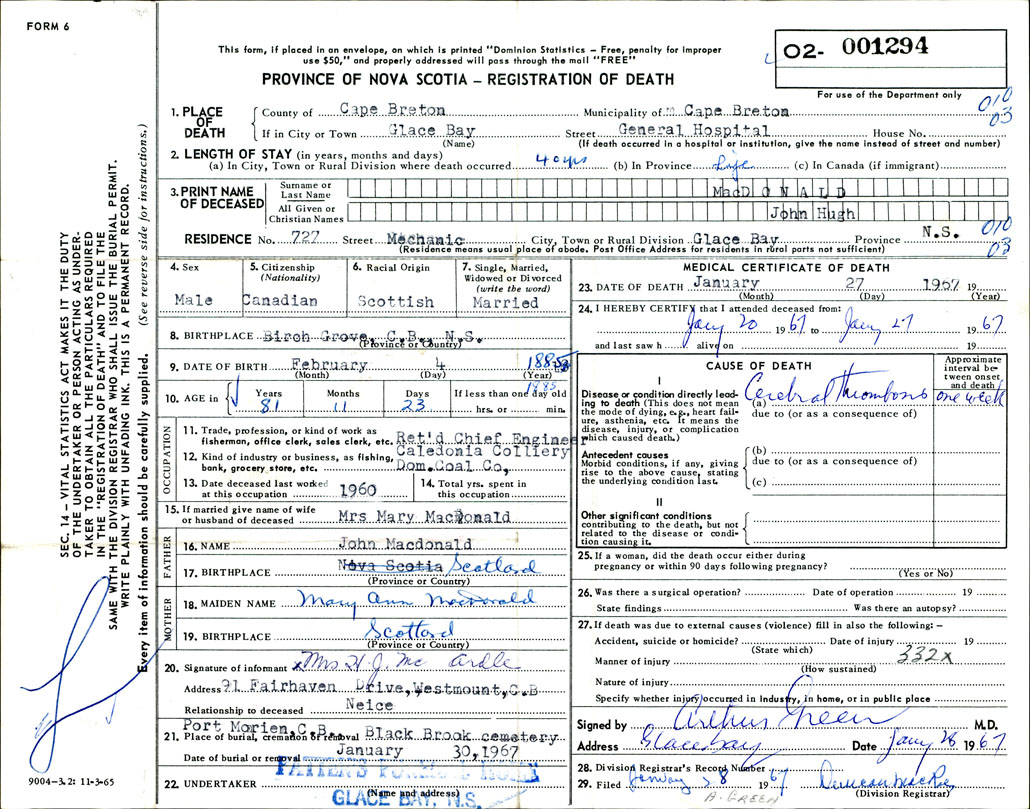 FORM 6
This form, if placed in an envelope, on which is printed "Dominion Statistics – Free, penalty for improper
use $50," and properly addressed will pass through the mail "FREE"
PROVINCE OF NOVA SCOTIA – REGISTRATION OF DEATH
O2- 001294
For use of the Department only
010
03
1. PLACE OF DEATH
County of Cape Breton Municipality of Cape Breton
If in City or Town Glace Bay Street General Hospital House No.
(Name) (If death occurred in a hospital or institution, give the name instead of street and number)
2. LENGTH OF STAY (in years, months and days)
(a) In City, Town or Rural Division where death occurred 40 yrs (b) In Province Life (c) In Canada (if immigrant)
3. PRINT NAME OF DECEASED
Surname or Last Name MacDONALD
All Given or Christian Names John Hugh
RESIDENCE No. 727 Street Mechanic City, Town or Rural Division Glace Bay Province N.S.
(Residence means usual place of abode. Post Office Address for residents in rural parts not sufficient)
010
03
4. Sex
Male
5. Citizenship
(Nationality)
Canadian
6. Racial Origin
Scottish
7. Single, Married,
Widowed or Divorced
(write the word)
Married
8. BIRTHPLACE Birch Grove, C.B., N.S.
(Province or Country)
9. DATE OF BIRTH February 4 1885
(Month) (Day) (Year)
1885
10. AGE in Years Months Days If less than one day old
81 11 23 hrs. or min.
OCCUPATION
11. Trade, profession, or kind of work as
fisherman, office clerk, sales clerk, etc. Ret'd Chief Engineer
12. Kind of industry or business, as fishing,
bank, grocery store, etc. Caledonia Colliery
Dom.Coal Co,
13. Date deceased last worked
at this occupation 1960
14. Total yrs. spent in
this occupation
15. If married give name of wife
or husband of deceased Mrs Mary MacDonald
FATHER
16. NAME John Macdonald
17. BIRTHPLACE Nova Scotia Scotland
(Province or Country)
MOTHER
18. MAIDEN NAME Mary Ann MacDonald
19. BIRTHPLACE Scotland
(Province or Country)
20. Signature of informant x Mrs H.J. Mc Ardle
Address 91 Fairhaven Drive, Westmount, C.B
Relationship to deceased Neice
21. Place of burial, cremation or removal Port Morien, C.B. Black Brook cemetery
Date of burial or removal January 30, 1967
22. UNDERTAKER
(Name and address)
GLACE BAY, N.S.
MEDICAL CERTIFICATE OF DEATH
23. DATE OF DEATH January 27 1967 19
(Month) (Day) (Year)
24. I HEREBY CERTIFY that I attended deceased from:
Jany 20 1967 to Jany 27 1967
and last saw h alive on 19
CAUSE OF DEATH
Approximate
interval be-
tween onset
and death
I
Disease or condition directly lead-
ing to death (This does not mean
the mode of dying, e.g., heart fail-
ure, asthenia, etc. It means the
disease, injury, or complication
which caused death.)
(a) Cerebral Thrombosis one week
due to (or as a consequence of)
Antecedent causes
Morbid conditions, if any, giving
rise to the above cause, stating
the underlying condition last.
(b)
due to (or as a consequence of)
(c)
II
Other significant conditions
contributing to the death, but not
related to the disease or condi-
tion causing it.
25. If a woman, did the death occur either during
pregnancy or within 90 days following pregnancy?
(Yes or No)
26. Was there a surgical operation? Date of operation 19
State findings Was there an autopsy?
27. If death was due to external causes (violence) fill in also the following: –
Accident, suicide or homicide? Date of injury 19
(State which)
332x
Manner of injury
(How sustained)
Nature of injury
Specify whether injury occurred in Industry, in home, or in public place
Signed by Arthur Green M.D.
Address Glace Bay Date Jany 28 1967
28. Division Registrar's Record Number
29. Filed January 28 1967 Duncan MacRae
(Division Registrar)
A. GREEN
SEC. 14 – VITAL STATISTICS ACT MAKES IT THE DUTY
OF THE UNDERTAKER OR PERSON ACTING AS UNDER-
TAKER TO OBTAIN ALL THE PARTICULARS REQUIRED
IN THE "REGISTRATION OF DEATH" AND TO FILE THE
SAME WITH THE DIVISION REGISTRAR WHO SHALL ISSUE THE BURIAL PERMIT.
WRITE PLAINLY WITH UNFADING INK. THIS IS A PERMANENT RECORD.
Every item of information should be carefully supplied. (See reverse side for instructions.)
9004-3.2: 11-3-65